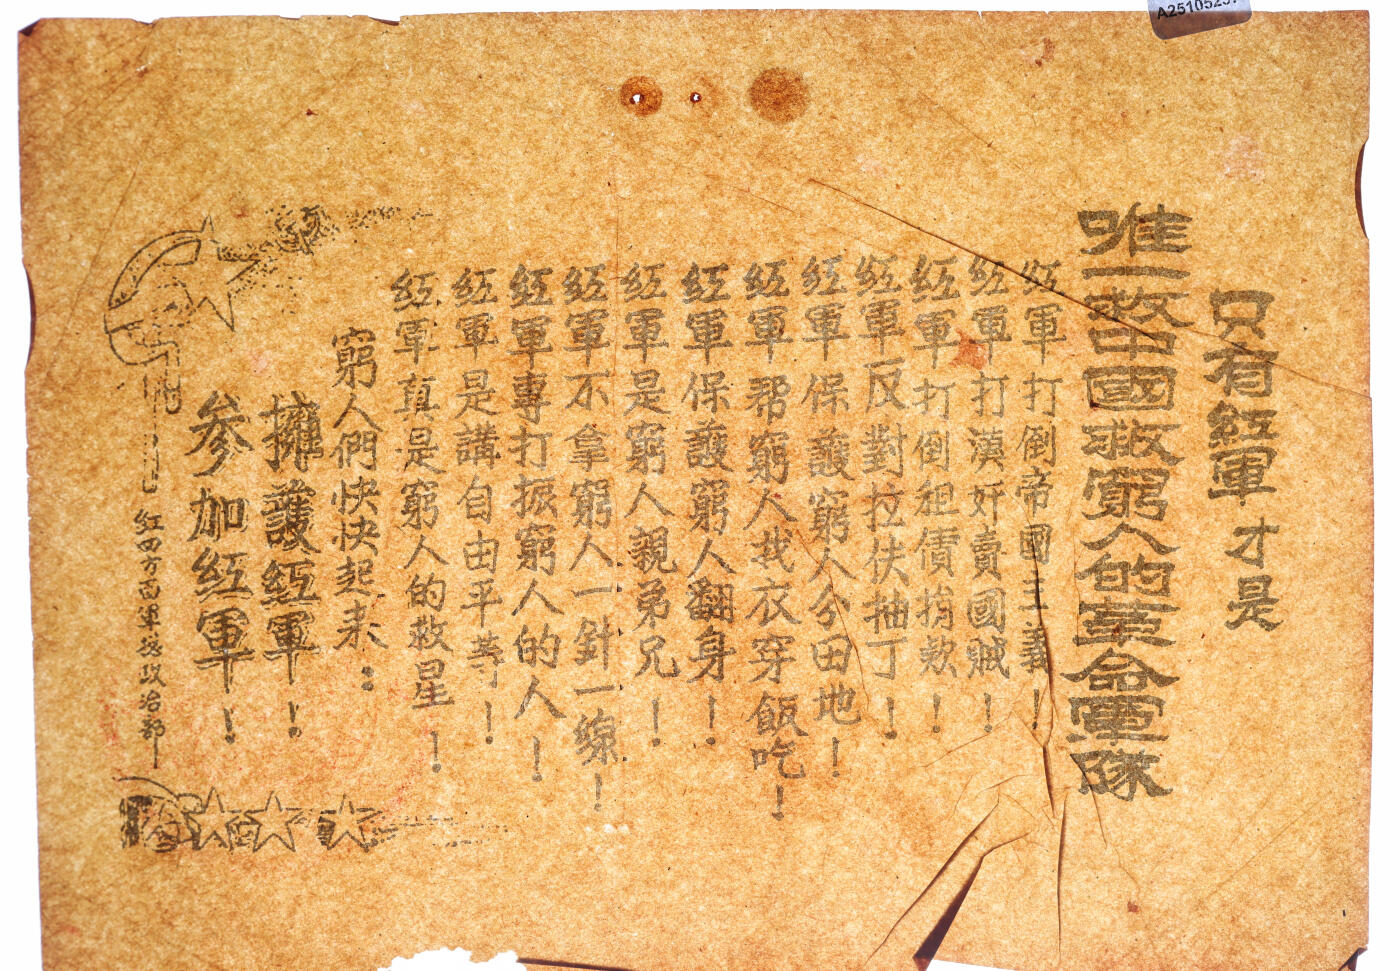 只有紅軍才是
唯一救中國救窮人的革命軍隊
紅軍打倒帝國主義！
紅軍打漢奸賣國賊！
紅軍打倒租債捐欵！
紅軍反對拉伕抽丁！
紅軍保護窮人分田地！
紅軍帮窮人找衣穿飯吃！
紅軍保護窮人翻身！
紅軍是窮人親弟兄！
紅軍不拿窮人一針一線！
紅軍專打振窮人的人！
紅軍是講自由平等！
紅軍真是窮人的救星！
窮人們快快起來：
擁護紅軍！
參加紅軍！
紅四方面軍總政治部